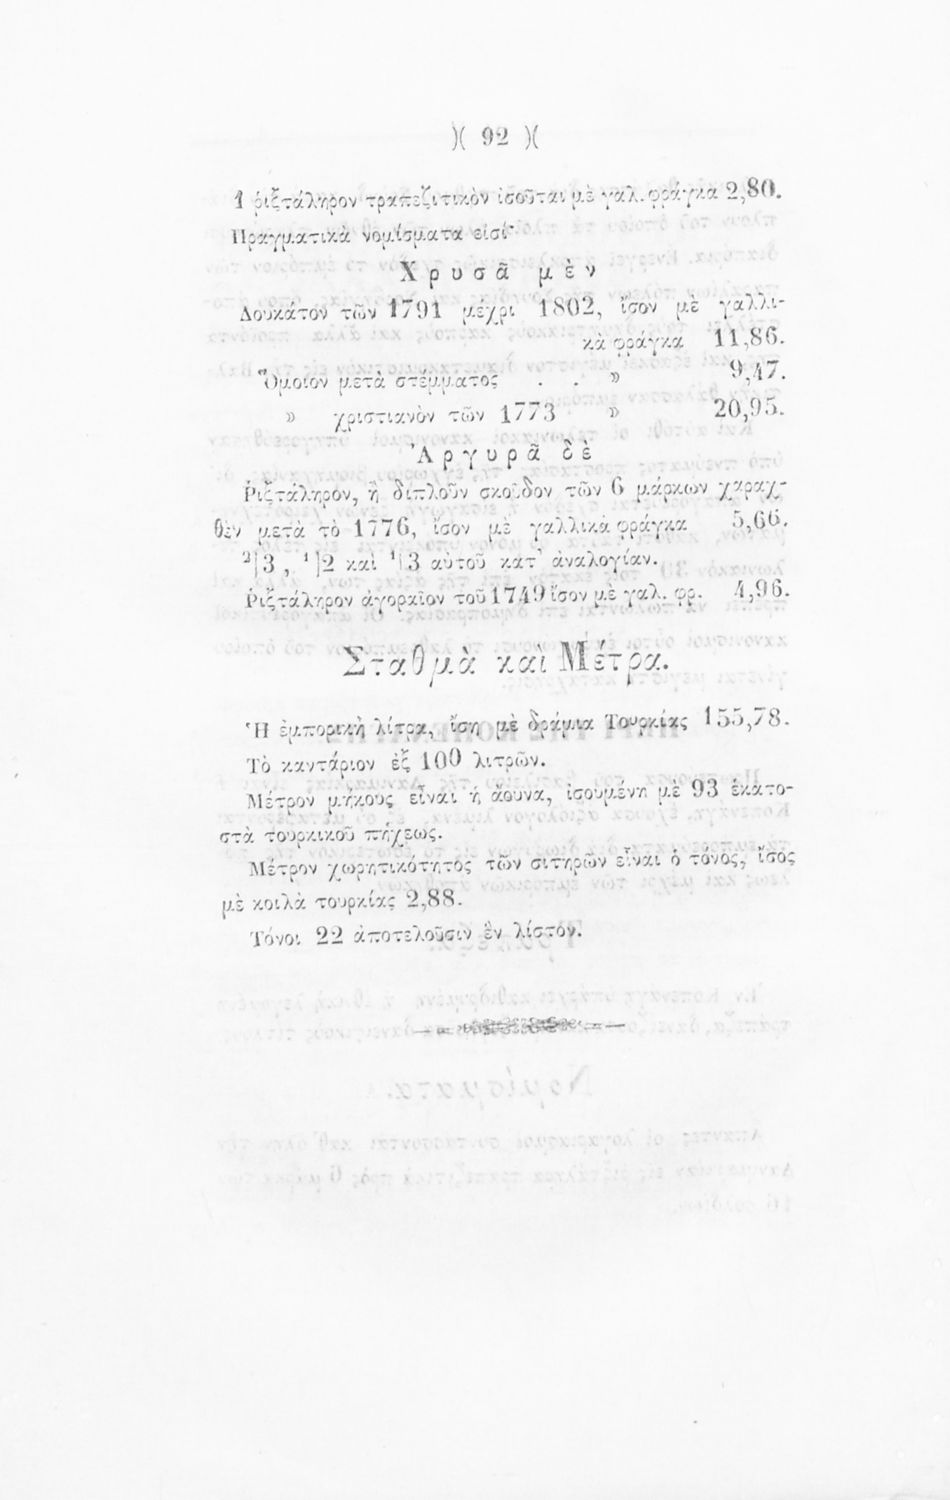 )( 92 )(
1 ῥιξτάληρον τραπεζιτικὸν ἰσοῦται μὲ γαλ. φράγκα 2,80.
Πραγματικὰ νομίσματα εἰσί·
Χρυσᾶ μὲν
Δουκάτον τῶν 1791 μέχρι 1802, ἴσον μὲ γαλλι-
κὰ φράγκα 11,86.
Ὅμοιον μετὰ στέμματος . . » 9,47.
» χριστιανὸν τῶν 1773 » 20,95.
Ἀργυρᾶ δὲ
Ῥιξτάληρον, ἢ διπλοῦν σκοῖδον τῶν 6 μάρκων χαραχ-
θὲν μετὰ τὸ 1776, ἴσον μὲ γαλλικὰ φράγκα 5,66.
2|3, 1|2 καὶ 1|3 αὐτοῦ κατ' ἀναλογίαν.
Ῥιξτάληρον ἀγοραῖον τοῦ 1749 ἴσον μὲ γαλ. φρ. 4,96.
Σταθμὰ καὶ Μέτρα.
Ἡ ἐμπορικὴ λίτρα, ἴση μὲ δράμια Τουρκίας 155,78.
Τὸ καντάριον ἐξ 100 λιτρῶν.
Μέτρον μήκους εἶναι ἡ ἄουνα, ἰσουμένη μὲ 93 ἑκατο-
στὰ τουρκικοῦ πήχεως.
Μέτρον χωρητικότητος τῶν σιτηρῶν εἶναι ὁ τόνος, ἴσος
μὲ κοιλὰ τουρκίας 2,88.
Τόνοι 22 ἀποτελοῦσιν ἓν λίστον.